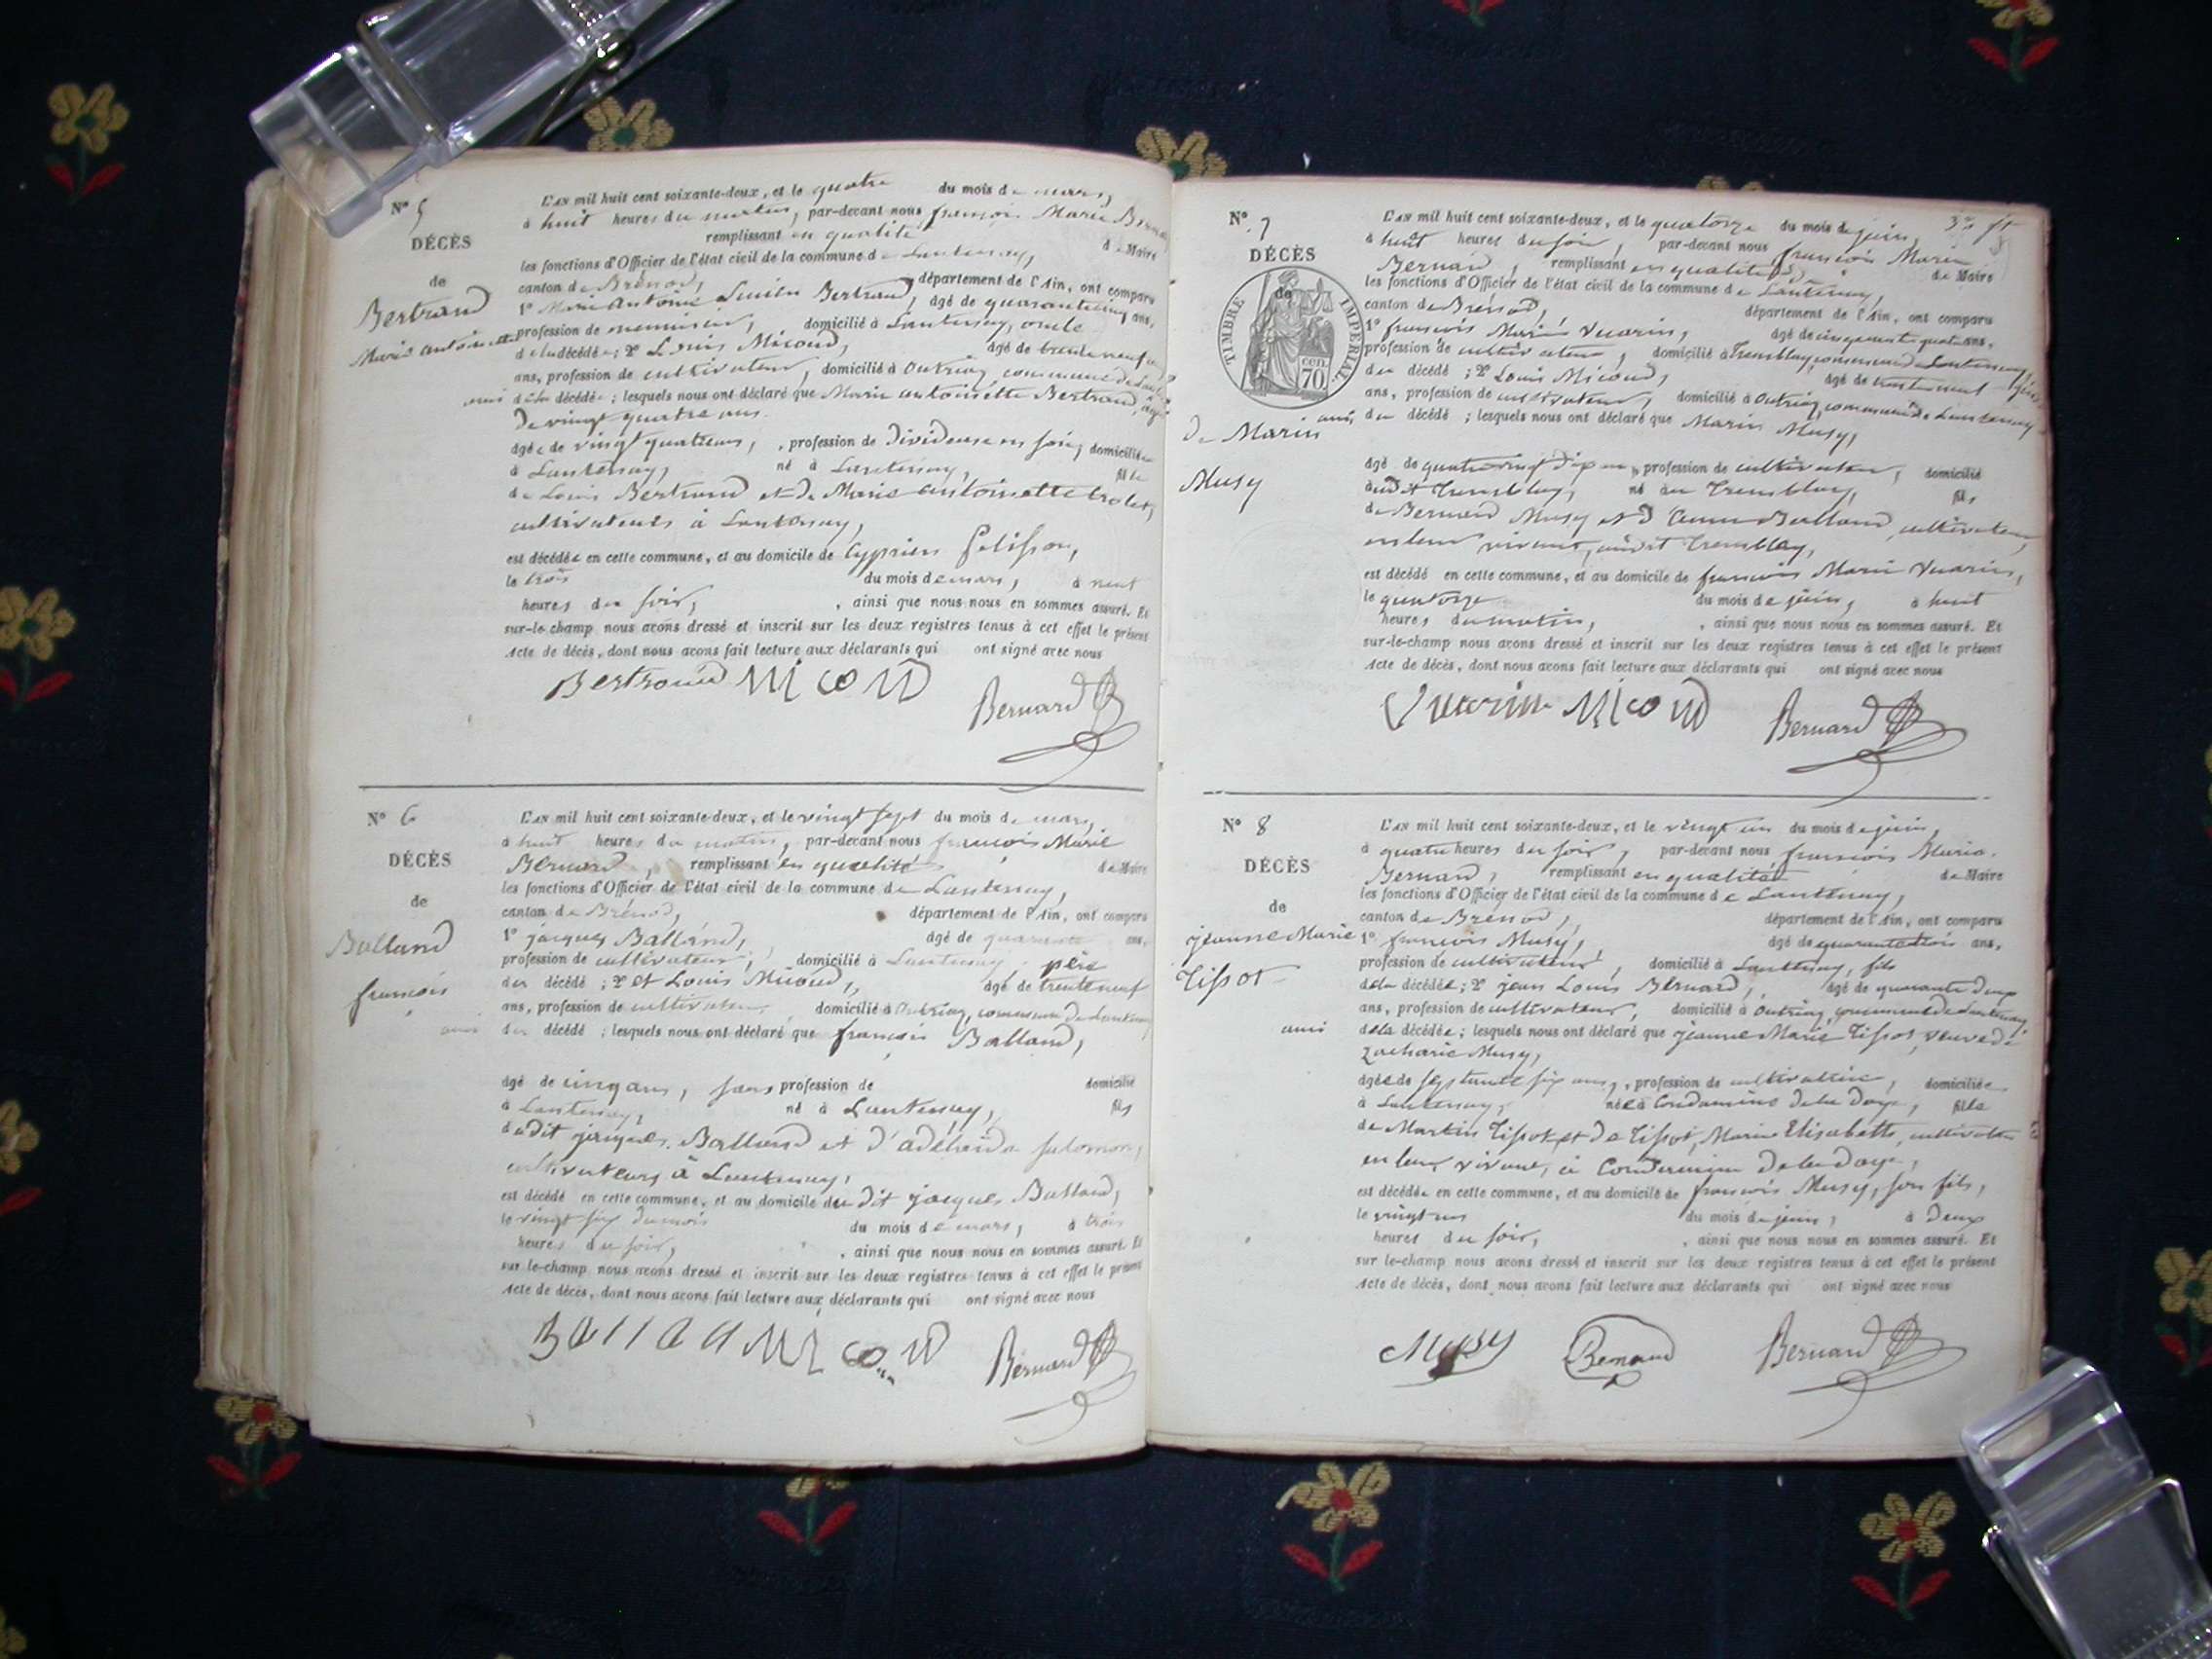 N° 5
DÉCÈS
de
Bertrand
Marie antoinette
L'AN mil huit cent soixante-deux, et le quatre du mois de mars,
à huit heures du matin, par-devant nous françois Marie
remplissant en qualité de Maire
les fonctions d'Officier de l'état civil de la commune de Lantenay,
canton de Brénod, département de l'Ain, ont comparu
1° Marie Antoine Bertrand, âgé de quarante cinq ans,
profession de menuisier, domicilié à Lantenay, oncle
de la décédée; 2° Louis Micoud, âgé de trente neuf
ans, profession de cultivateur, domicilié à Outriaz commune de
ami de la décédée; lesquels nous ont déclaré que Marie antoinette Bertrand, âgé
de vingt quatre ans.
âgée de vingt quatre ans, profession de Divideuse en soie, domiciliée
à Lantenay, né à Lantenay, fille
de Louis Bertrand et de Marie antoinette
cultivateurs à Lantenay,
est décédée en cette commune, et au domicile de Cyprien
le trois du mois de mars, à neuf
heures du soir, ainsi que nous nous en sommes assuré. Et
sur-le-champ nous avons dressé et inscrit sur les deux registres tenus à cet effet le présent
Acte de décès, dont nous avons fait lecture aux déclarants qui ont signé avec nous
Bertrand Micoud Bernard
N° 6
DÉCÈS
de
Balland
françois
L'AN mil huit cent soixante-deux, et le vingt sept du mois de mars,
à huit heures du matin, par-devant nous françois Marie
Bernard, remplissant en qualité de Maire
les fonctions d'Officier de l'état civil de la commune de Lantenay,
canton de Brénod, département de l'Ain, ont comparu
1° jacques Balland, âgé de quarante ans,
profession de cultivateur, domicilié à Lantenay père
du décédé; 2° et Louis Micoud, âgé de trente neuf
ans, profession de cultivateur, domicilié à Outriaz, commune de Lantenay
ami du décédé; lesquels nous ont déclaré que françois Balland,
âgé de cinq ans, sans profession de domicilié
à Lantenay, né à Lantenay, fils
du dit jacques Balland et d'adélaïde Salomon,
cultivateurs à Lantenay,
est décédé en cette commune, et au domicile du dit jacques Balland,
le vingt six du mois du mois de mars, à trois
heures du soir, ainsi que nous nous en sommes assuré. Et
sur-le-champ nous avons dressé et inscrit sur les deux registres tenus à cet effet le présent
Acte de décès, dont nous avons fait lecture aux déclarants qui ont signé avec nous
Micoud Bernard
N° 7
DÉCÈS
de
TIMBRE IMPÉRIAL
70 cen
de Marin
Musy
L'AN mil huit cent soixante-deux, et le quatorze du mois de juin,
à huit heures du soir, par-devant nous françois Marie
Bernard, remplissant en qualité de Maire
les fonctions d'Officier de l'état civil de la commune de Lantenay,
canton de Brénod, département de l'Ain, ont comparu
1° françois Marie Vuarin, âgé de cinquante quatre ans,
profession de cultivateur, domicilié à Tremblay, commune de Lantenay,
du décédé; 2° Louis Micoud, âgé de trente neuf
ans, profession de cultivateur, domicilié à Outriaz, commune de Lantenay
ami du décédé; lesquels nous ont déclaré que Marin Musy,
âgé de quatre vingt dix ans, profession de cultivateur, domicilié
audit Tremblay, né au Tremblay, fils
de Bernard Musy et d'anne Balland, cultivateurs
en leur vivant, audit Tremblay,
est décédé en cette commune, et au domicile de françois Marie Vuarin,
le quatorze du mois de juin, à huit
heures du matin, ainsi que nous nous en sommes assuré. Et
sur-le-champ nous avons dressé et inscrit sur les deux registres tenus à cet effet le présent
Acte de décès, dont nous avons fait lecture aux déclarants qui ont signé avec nous
Vuarin Micoud Bernard
N° 8
DÉCÈS
de
jeanne Marie
Tissot
L'AN mil huit cent soixante-deux, et le vingt un du mois de juin,
à quatre heures du soir, par-devant nous françois Marie
Bernard, remplissant en qualité de Maire
les fonctions d'Officier de l'état civil de la commune de Lantenay,
canton de Brénod, département de l'Ain, ont comparu
1° françois Musy, âgé de quarante trois ans,
profession de cultivateur, domicilié à Lantenay, fils
de la décédée; 2° jean Louis Bernard, âgé de quarante deux
ans, profession de cultivateur, domicilié à Outriaz, commune de Lantenay,
ami de la décédée; lesquels nous ont déclaré que jeanne Marie Tissot, veuve de
Zacharie Musy,
âgée de septante six ans, profession de cultivatrice, domiciliée
à Lantenay, née à Condamine de la Doye, fille
de Martin Tissot et de Tissot, Marie Elisabeth, cultivateurs
en leur vivant, à Condamine de la doye,
est décédée en cette commune, et au domicile de françois Musy, son fils,
le vingt un du mois de juin, à deux
heures du soir, ainsi que nous nous en sommes assuré. Et
sur-le-champ nous avons dressé et inscrit sur les deux registres tenus à cet effet le présent
Acte de décès, dont nous avons fait lecture aux déclarants qui ont signé avec nous
Musy Bernard Bernard